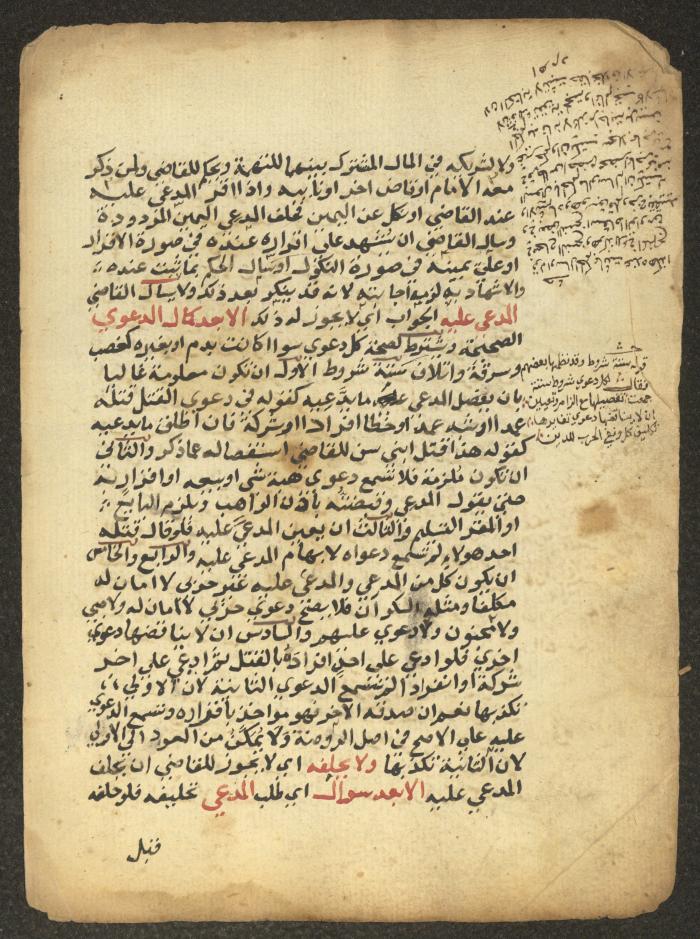 ولا لشريكه في المال المشترك بينهما للتهمة ويحكم للقاضي ولمن ذكر
معه الامام او قاض اخر او نايبه واذا اقر المدعي عليه
عند القاضي او نكل عن اليمين فحلف المدعي اليمين المردودة
وسال القاضي ان يشهد على اقراره عنده في صورة الاقرار
او على يمينه في صورة النكول او سال الحكم بما ثبت عنده
والاشهاد به لزمه اجابته لانه قد ينكر بعد ذلك ولا يسال القاضي
المدعي عليه الجواب اي لا يجوز له ذلك الا بعد كمال الدعوي
الصحيحة ويشترط لصحة كل دعوي سوا كانت بدم او بغيره كغصب
وسرقة واتلاف ستة شروط الاول ان تكون معلومة غالبا
بان يفصل المدعي ما يدعيه كقوله في دعوي القتل قتله
عمدا او شبه عمد او خطا افرادا او شركة فان اطلق ما يدعيه
كقوله هذا قتل ابني سن للقاضي استفصاله عما ذكر والثاني
ان تكون ملزمة فلا تسمع دعوي هبة شي او بيعه او اقرار به
حتى يقول المدعي وقبضته باذن الواهب ويلزم البايع
او المقر التسليم والثالث ان يعين المدعي عليه فلو قال قتله
احد هولاء لم تسمع دعواه لابهام المدعي عليه والرابع والخامس
ان يكون كل من المدعي والمدعي عليه غير حربي لا امان له
مكلفا ومثله السكران فلا يصح دعوي حربي لا امان له ولا صبي
ولا مجنون ولا دعوي عليهم والسادس ان لا يناقضها دعوي
اخري فلو ادعي على احد افراده بالقتل ثم ادعي على اخر
شركة او انفرادا لم تسمع الدعوي الثانية لان الاولي
تكذبها نعم ان صدقه الاخر فهو مواخذ باقراره وتسمع الدعوي
عليه على الاصح في اصل الروضة ولا يمكن من العود الى الاولي
لان الثانية تكذبها ولا يحلفه اي لا يجوز للقاضي ان يحلف
المدعي عليه الا بعد سوال اي طلب المدعي تحليفه فلو حلفه
قبل
قوله ستة شروط وقد نظمها بعضهم
فقال لكل دعوي شروط ستة
جمعت تفصيلها مع الزام وتعيين
ان لا يناقضها دعوي تغايرها
تكليف كل ونفي الحرب للدين